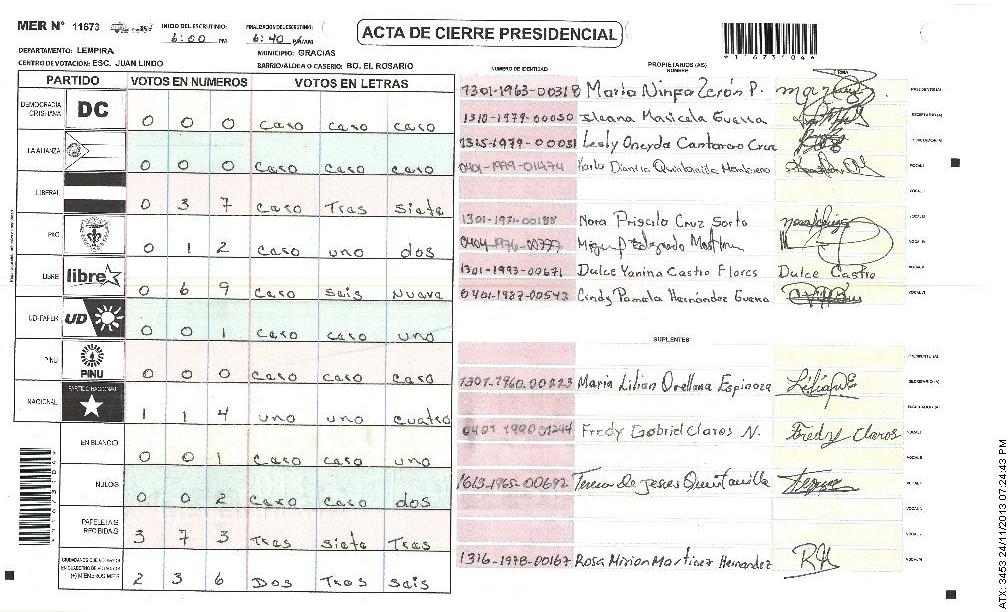 MER N° 11673 INICIO DEL ESCRUTINIO: 6:00 PM FINALIZACION DEL ESCRUTINIO: 6:40 PM/AM
ACTA DE CIERRE PRESIDENCIAL
DEPARTAMENTO: LEMPIRA MUNICIPIO: GRACIAS
CENTRO DE VOTACION: ESC. JUAN LINDO BARRIO/ALDEA O CASERIO: BO. EL ROSARIO
PARTIDO VOTOS EN NUMEROS VOTOS EN LETRAS
DEMOCRACIA CRISTIANA DC 0 0 0 caso caso caso
LA ALIANZA 0 0 0 caso caso caso
LIBERAL 0 3 7 caso Tras siete
PAC 0 1 2 caso uno dos
LIBRE libre 0 6 9 caso seis Nuave
UD-FAPER UD 0 0 1 caso caso uno
PINU PINU 0 0 0 caso caso caso
NACIONAL PARTIDO NACIONAL 1 1 4 uno uno cuatro
EN BLANCO 0 0 1 caso caso uno
NULOS 0 0 2 caso caso dos
PAPELETAS RECIBIDAS 3 7 3 Tras siete Tras
CIUDADANOS QUE VOTARON EN CUADERNO DE VOTACION (+) MIEMBROS MER 2 3 6 Dos Tras seis
NUMERO DE IDENTIDAD PROPIETARIOS (AS) NOMBRE FIRMA
1301-1963-00318 Maria Ninfa Zerón P. PRESIDENTE (A)
1310-1979-00030 Ileana Maricela Guerra SECRETARIO (A)
1325-1979-00031 Lesly Oneyda Cantarero Cruz ESCRUTADOR (A)
0401-1989-01474 Karla Dianira Quintanilla Monterero VOCAL I
VOCAL II
1301-1981-00188 Nora Priscila Cruz Sorto VOCAL III
0404-1976-00797 Miguel VOCAL IV
1301-1993-00671 Dulce Yanina Castro Flores Dulce Castro VOCAL V
0401-1987-00543 Cindy Pamela Hernández Guerra VOCAL VI
SUPLENTES
PRESIDENTE (A)
1301-1960-00223 Maria Lilian Orellana Espinoza SECRETARIO (A)
ESCRUTADOR (A)
0401 1990 01244 Fredy Gabriel Claros N. Fredy Claros VOCAL I
VOCAL II
1613-1965-00692 Teresa de Jesus Quintanilla VOCAL III
VOCAL IV
VOCAL V
1316-1978-00167 Rosa Mirian Martinez Hernandez VOCAL VI
*1167304*
ATX: 3453 24/11/2013 07:24:43 PM